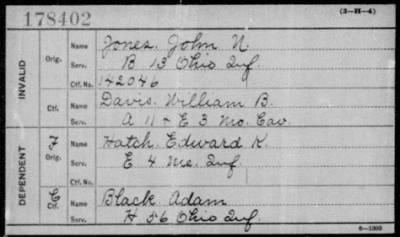 178402
(3-H-4)
INVALID
Orig.
Name Jones, John N.
Serv. B 13 Ohio Inf.
Ctf. No. 142046
Ctf.
Name Davis, William B.
Serv. A 11 + E 3 Mo. Cav.
DEPENDENT
Orig.
Name Hatch, Edward K.
Serv. E 4 Me. Inf.
Ctf. No.
Ctf.
Name Black Adam
Serv. H 56 Ohio Inf.
6-1303